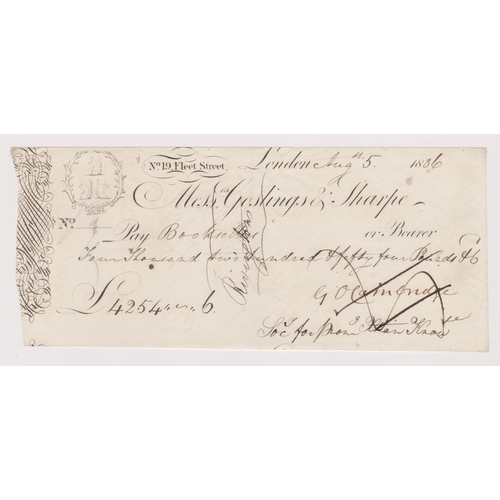 No 19 Fleet Street. London Augst 5. 1836
Messrs Goslings & Sharpe
No Pay Booksellers or Bearer
Four Thousand two hundred & fifty four Pounds & 6
£4254 " " 6.
Rivingtons
Socy for prom